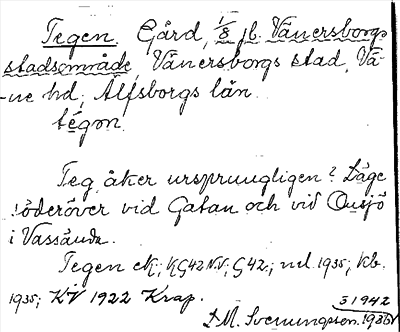 Tegen. Gård, 1/8 jb. Vänersborgs
stadsområde, Vänersborgs stad, Vä-
-ne hd, Älfsborgs län.
tégon.
Teg, åker ursprungligen? Läge
söderöver vid Gatan och vid
i Vassända.
Tegen ek; KG42NV; G42; ml 1935; kb.
1935; KV 1922 Krap.
31942
D.M. Svenungsson. 1936